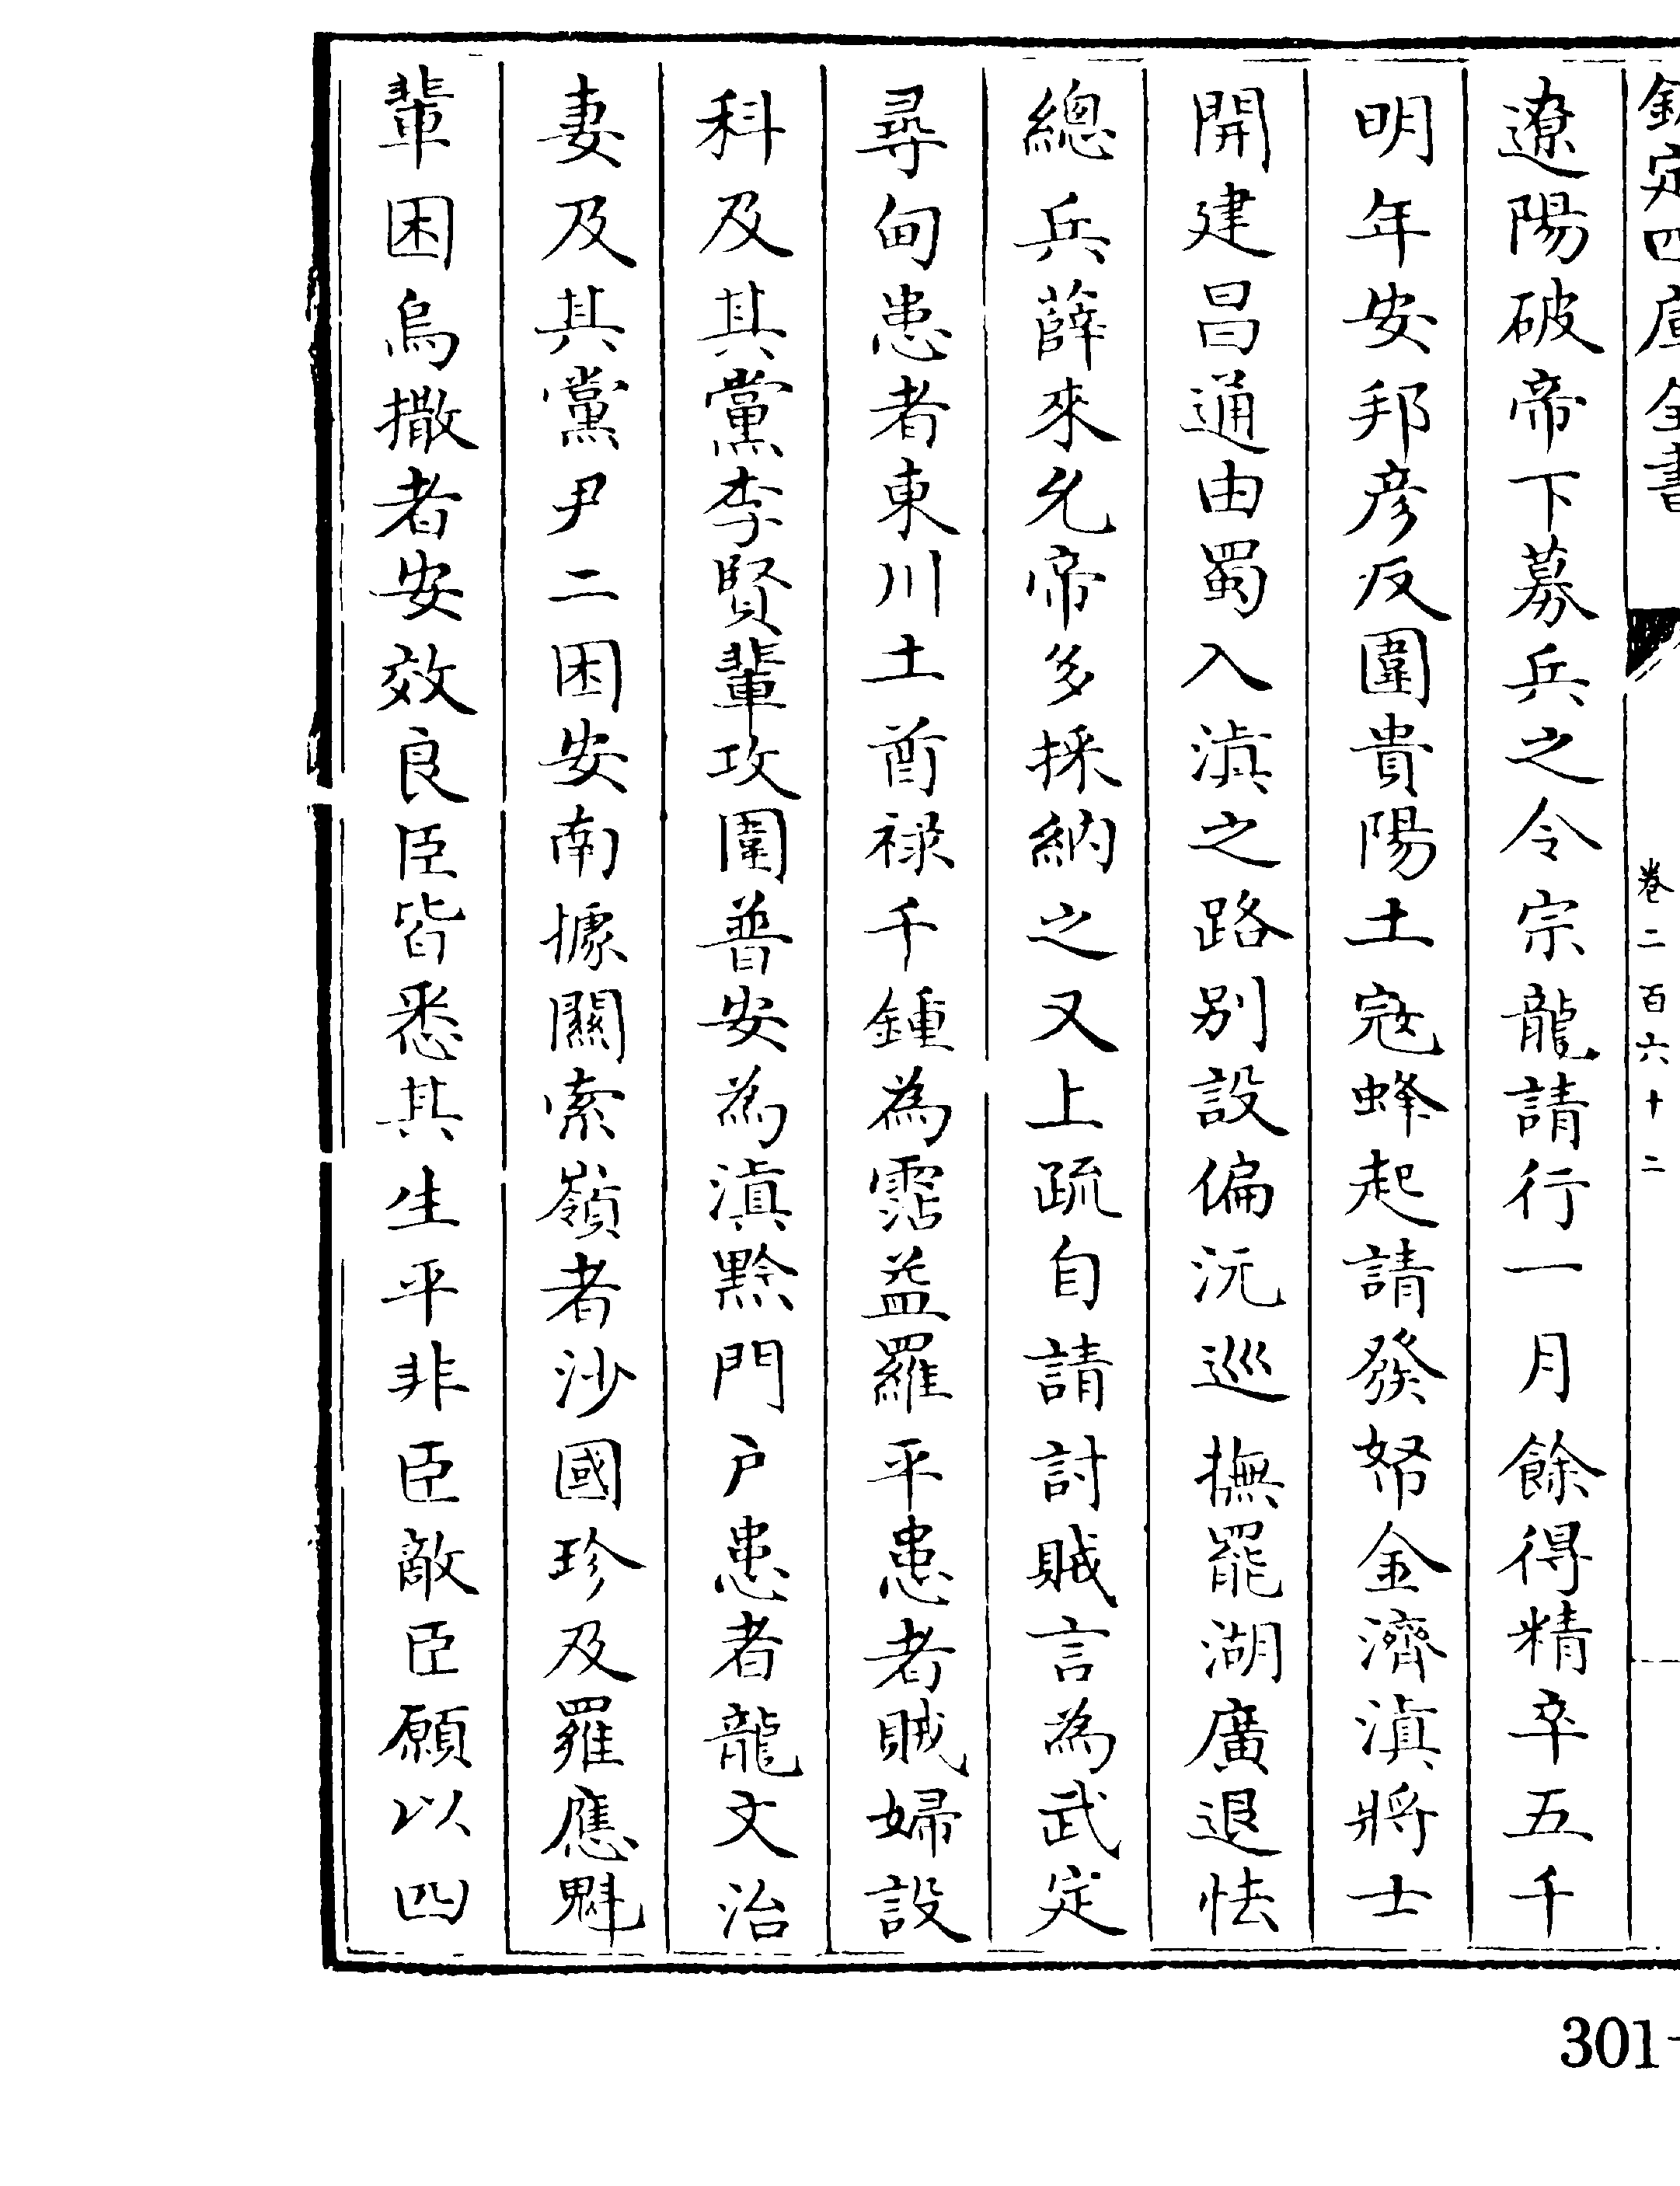 欽定四庫全書
卷二百六十二
遼陽破帝下募兵之令宗龍請行一月餘得精卒五千
明年安邦彦反圍貴陽土寇蜂起請發帑金濟滇將士
開建昌通由蜀入滇之路别設偏沅巡撫罷湖廣退怯
總兵薛來允帝多採納之又上疏自請討賊言為武定
尋甸患者東川土酋禄千鍾為霑益羅平患者賊婦設
科及其黨李賢輩攻圍普安為滇黔門户患者龍文治
妻及其黨尹二困安南據關索嶺者沙國珍及羅應魁
輩困烏撒者安效良臣皆悉其生平非臣敵臣願以四
301